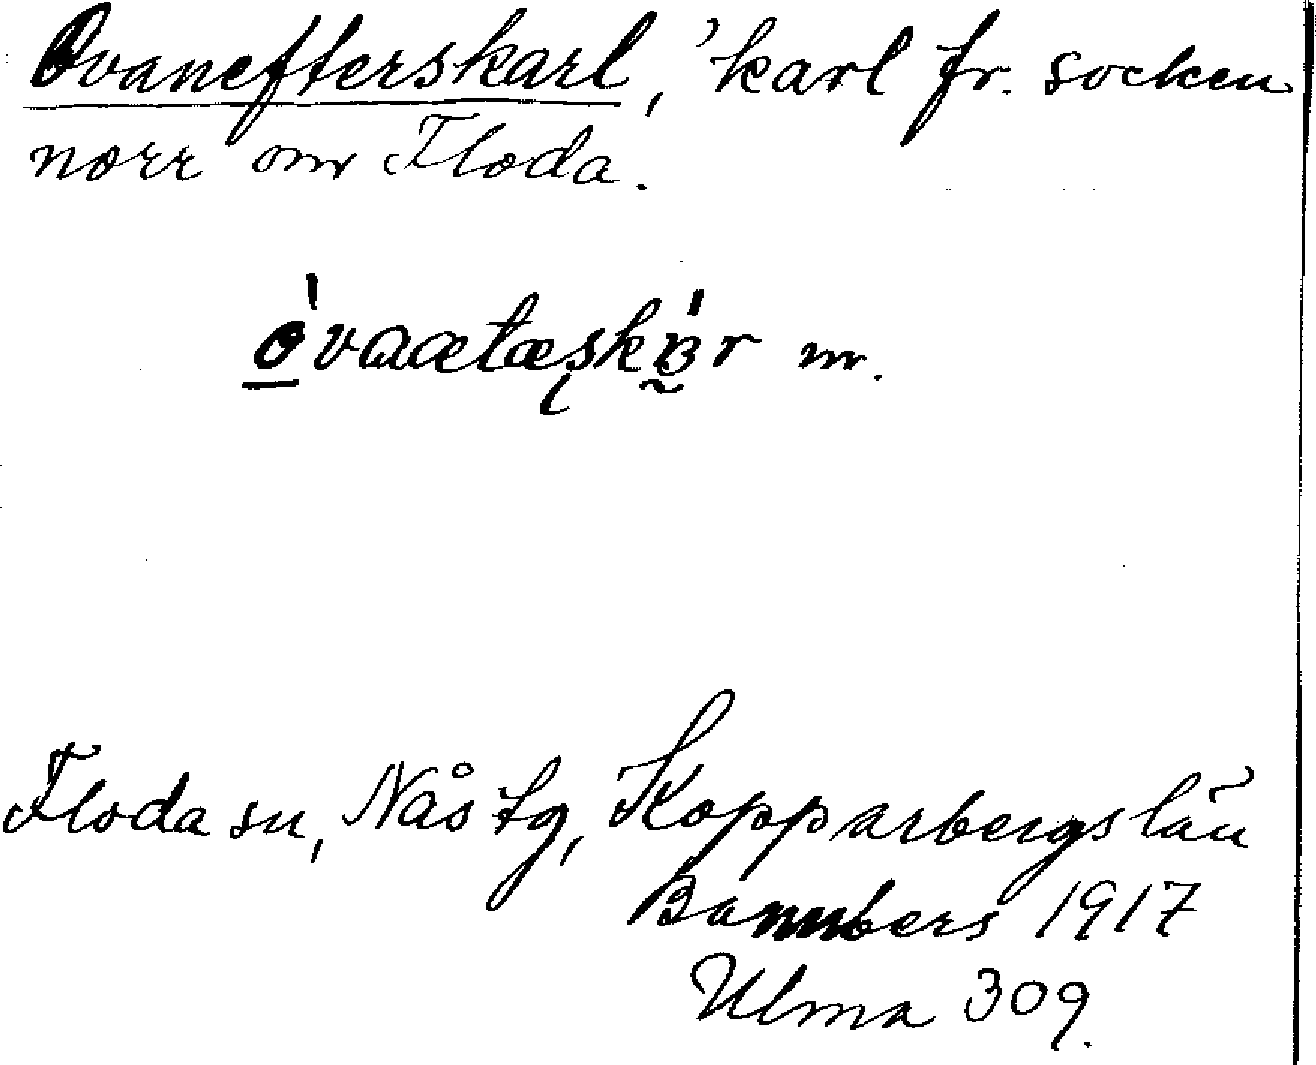 Ovanefterskarl, 'karl fr. socken
norr om Floda.
m.
Floda sn, Nås tg, Kopparbergs län
Bannbers 1917
Ulma 309.